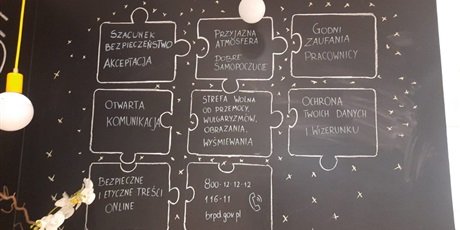 SZACUNEK
BEZPIECZEŃSTWO
AKCEPTACJA
PRZYJAZNA
ATMOSFERA
DOBRE
SAMOPOCZUCIE
GODNI
ZAUFANIA
PRACOWNICY
OTWARTA
KOMUNIKACJA
STREFA WOLNA
OD PRZEMOCY,
WULGARYZMÓW,
OBRAŻANIA,
WYŚMIEWANIA
OCHRONA
TWOICH DANYCH
I WIZERUNKU
BEZPIECZNE
I ETYCZNE TREŚCI
ONLINE
800-12-12-12
116-11
brpd.gov.pl